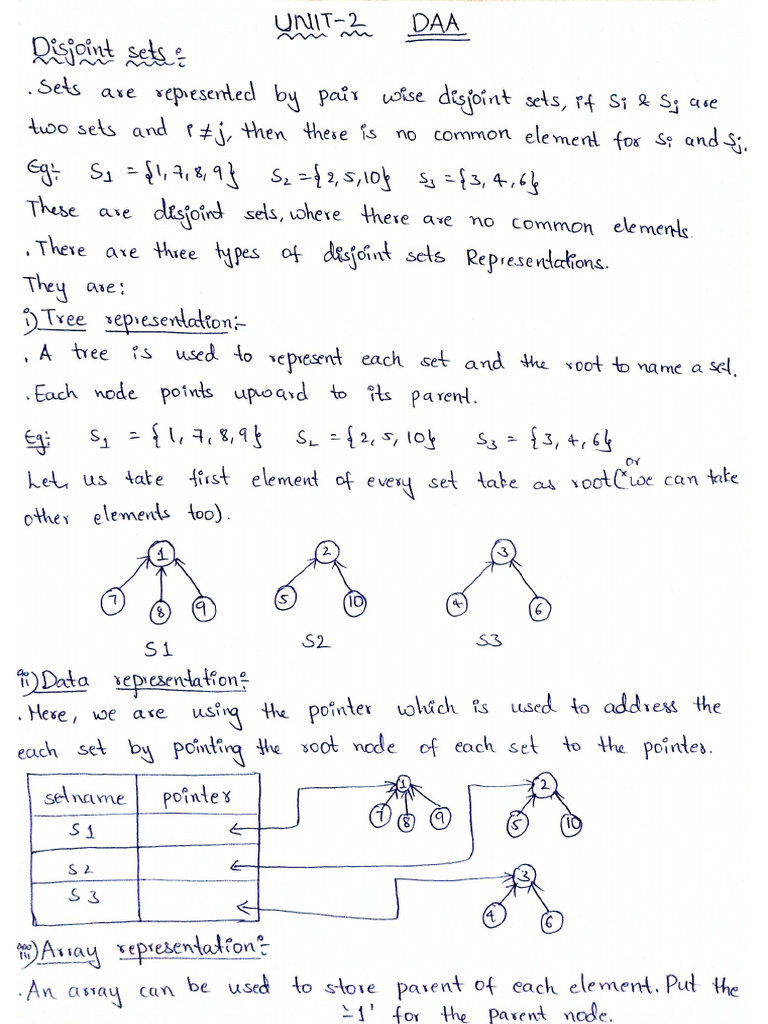 UNIT-2 DAA
Disjoint sets:-
. Sets are represented by pair wise disjoint sets, if Si & Sj are
two sets and i≠j, then there is no common element for Si and Sj.
Eg:- S1 = {1, 7, 8, 9} S2 = {2, 5, 10} S3 = {3, 4, 6}
These are disjoint sets, where there are no common elements.
. There are three types of disjoint sets Representations.
They are:
i) Tree representation:-
. A tree is used to represent each set and the root to name a set.
. Each node points upward to its parent.
Eg:- S1 = {1, 7, 8, 9} S2 = {2, 5, 10} S3 = {3, 4, 6}
or
Let, us take first element of every set take as root (* we can take
other elements too).
1 2 3
7 8 9 5 10 4 6
S1 S2 S3
ii) Data representation:-
. Here, we are using the pointer which is used to address the
each set by pointing the root node of each set to the pointer.
setname pointer 1 2
S1 7 8 9 5 10
S2
S3 3
4 6
iii) Array representation:-
. An array can be used to store parent of each element. Put the
'-1' for the parent node.